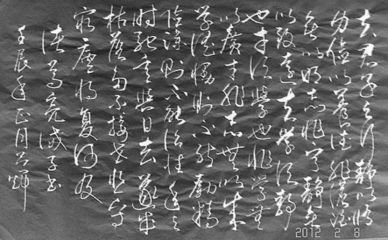 夫君子之行静以修
身俭以养德非澹泊
无以明志非宁静无
以致远夫学须静
也才须学也非学无
以广才非志无以成
学慢则不能励精
险躁则不能治性年与
时驰意与日去遂成
枯落多不接世悲守
穷庐将复何及
诸葛亮诫子书
壬辰年正月辉
2012 2 8